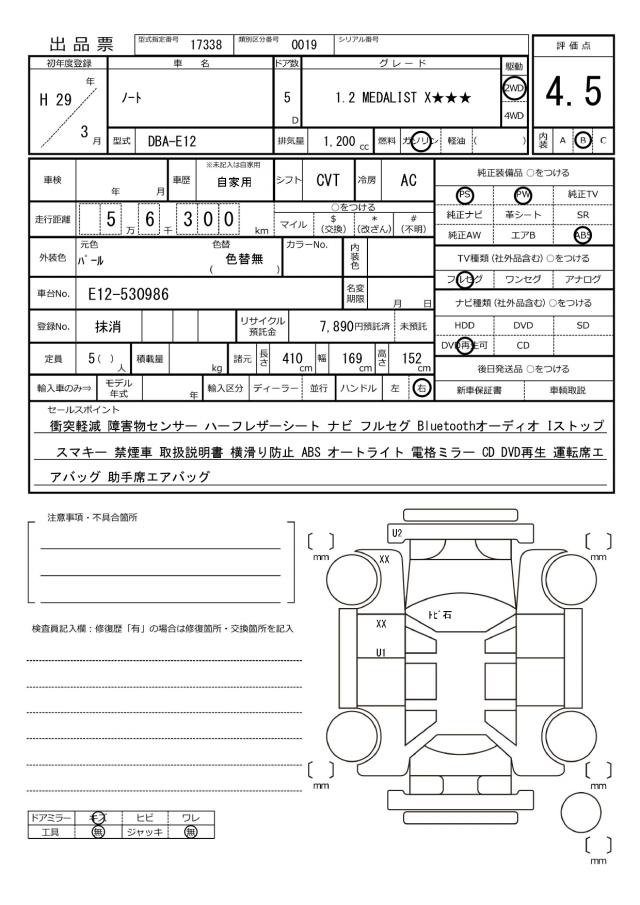 出品票
型式指定番号 17338 類別区分番号 0019 シリアル番号
評価点
4.5
内装 A B C
初年度登録 車名 ドア数 グレード 駆動
H 29 年 3 月
ノート
5 D
1.2 MEDALIST X★★★
2WD
4WD
型式 DBA-E12 排気量 1,200 cc 燃料 ガソリン 軽油 ( )
車検 年 月 車歴 ※未記入は自家用 自家用 シフト CVT 冷房 AC
走行距離 5 万 6 千 3 0 0 km
○をつける
マイル $(交換) *(改ざん) #(不明)
外装色 元色 パール 色替 色替無 ( ) カラーNo. 内装色
車台No. E12-530986 名変期限 月 日
登録No. 抹消 リサイクル預託金 7,890円預託済 未預託
定員 5( )人 積載量 kg 諸元 長さ 410 cm 幅 169 cm 高さ 152 cm
輸入車のみ⇒ モデル年式 年 輸入区分 ディーラー 並行 ハンドル 左 右
純正装備品 ○をつける
PS PW 純正TV
純正ナビ 革シート SR
純正AW エアB ABS
TV種類(社外品含む)○をつける
フルセグ ワンセグ アナログ
ナビ種類(社外品含む)○をつける
HDD DVD SD
DVD再生可 CD
後日発送品 ○をつける
新車保証書 車輌取説
セールスポイント
衝突軽減 障害物センサー ハーフレザーシート ナビ フルセグ Bluetoothオーディオ Iストップ
スマキー 禁煙車 取扱説明書 横滑り防止 ABS オートライト 電格ミラー CD DVD再生 運転席エ
アバッグ 助手席エアバッグ
注意事項・不具合箇所
検査員記入欄:修復歴「有」の場合は修復箇所・交換箇所を記入
U2
XX
トビ石
XX
U1
mm
mm
mm
mm
mm
ドアミラー キズ ヒビ ワレ
工具 無 ジャッキ 無